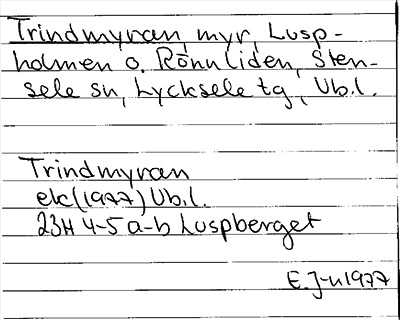 Trindmyran, myr, Lusp-
holmen o. Rönnliden, Sten-
sele sn, Lycksele tg, Vb.l.
Trindmyran
ek (1977) Vb.l.
23H 4-5 a-b Luspberget
E.J-n 1977